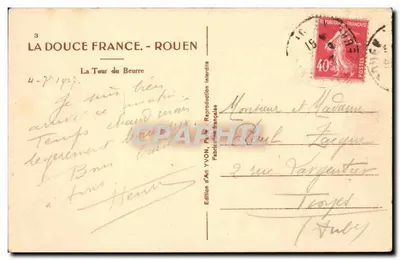 3
LA DOUCE FRANCE. - ROUEN
La Tour du Beurre
Je suis bien
arrivé ce matin.
Temps chaud mais
légèrement
Bons
à tous Henri
Edition d'Art YVON, Paris Reproduction interdite
Fabrication française
40c
POSTES
CPARAMA
Monsieur et Madame
Paul
2 rue Largentier
Troyes
(Aube)